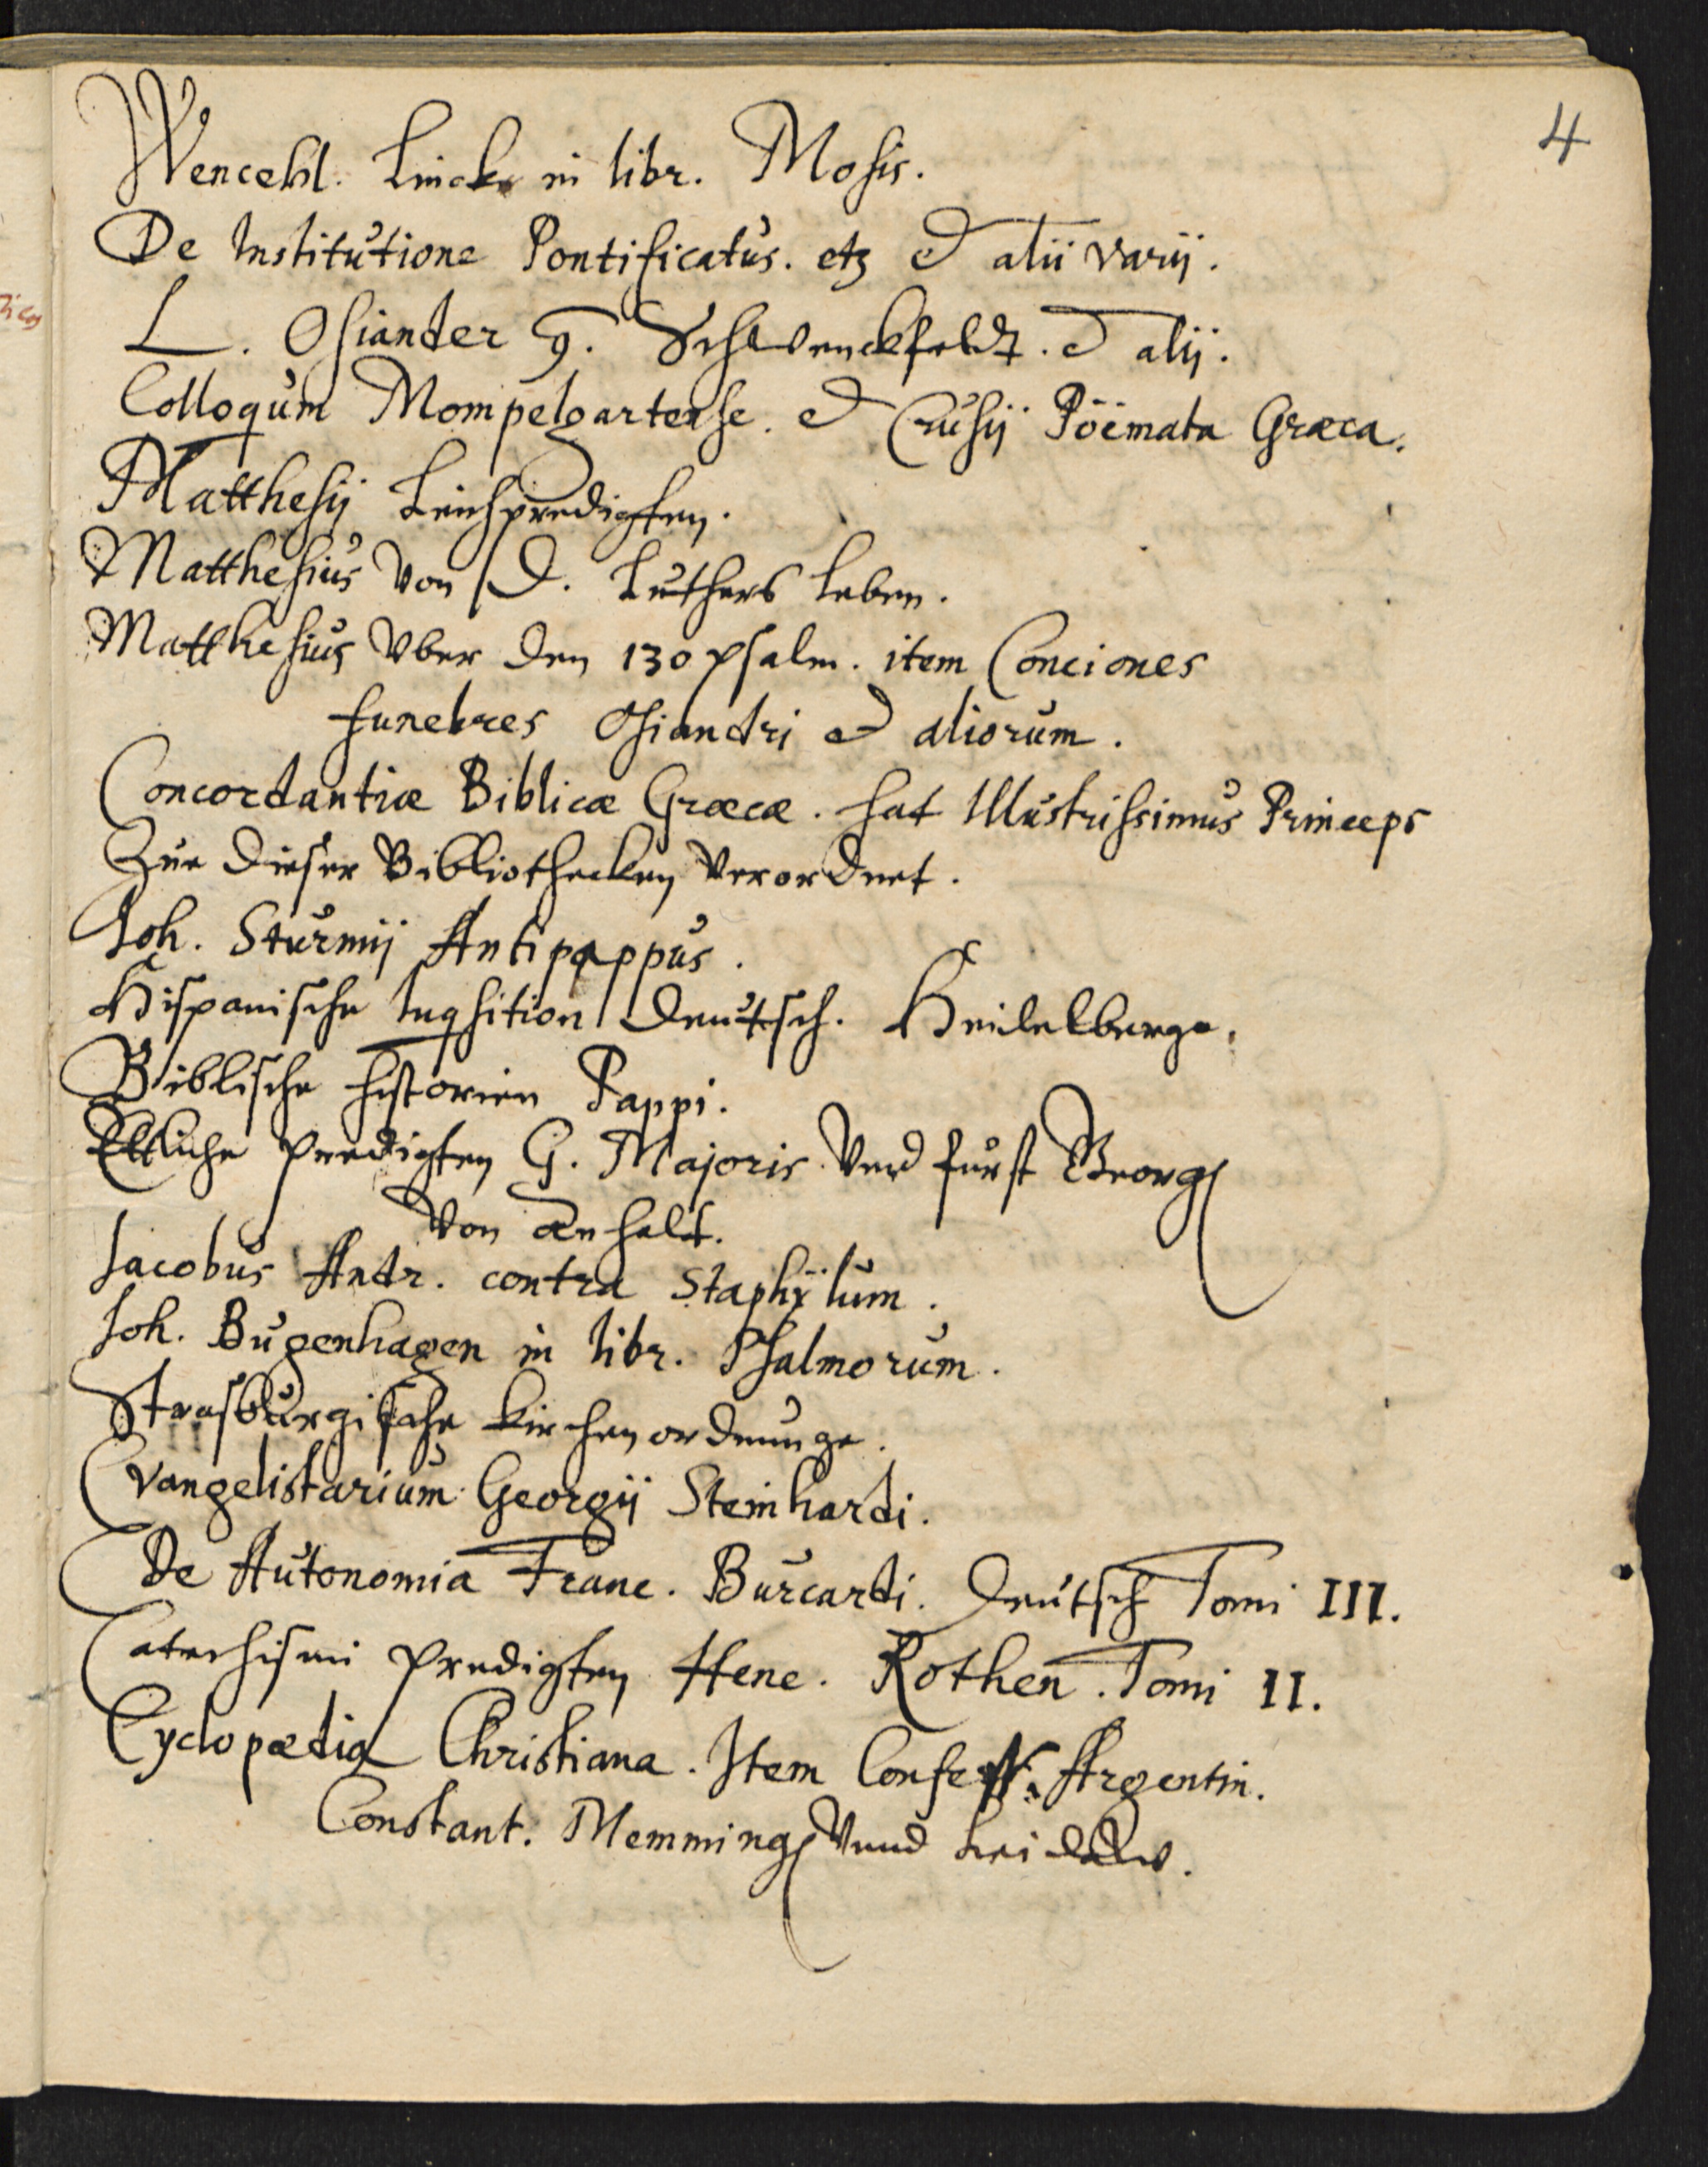 4
Wenceßl. Linck in libr. Mosis.
De Institutione Pontificatus. etz et alii varij.
L. Osiander 9. Schwenckfeldt. et alij.
Colloqum Mompelgartense. et Crusij Poëmata Græca.
Matthesij Leichpredigten.
Matthesius von D. Luthers Leben.
Matthesius vber den 130 Psalm. item Conciones
funebres Osiandri et aliorum.
Concordantiæ Biblicæ Græcæ. hat Illustrissimus Princeps
Zue dieser Bibliothecken verordnet.
Joh. Sturmij Antipappus.
Hispanische Inqsition deutsch. Heidelberge.
Biblische historien Pappi.
Ettliche Predigten G. Majoris. vnd fürst Georg
von Anhalt.
Jacobus Andr. contra Staphÿlum.
Joh. Bugenhagen in libr. Psalmorum.
Strasburgische Kirchenordnunge.
Evangelistarium Georgij Steinhardi.
De Autonomia Franc. Burcardi. deutsch Tomi III.
Catechismi Predigten Hene. Rothen. Tomi II.
Cyclopædia Christiana. Item Confess. Argentin.
Constant. Memming vnnd